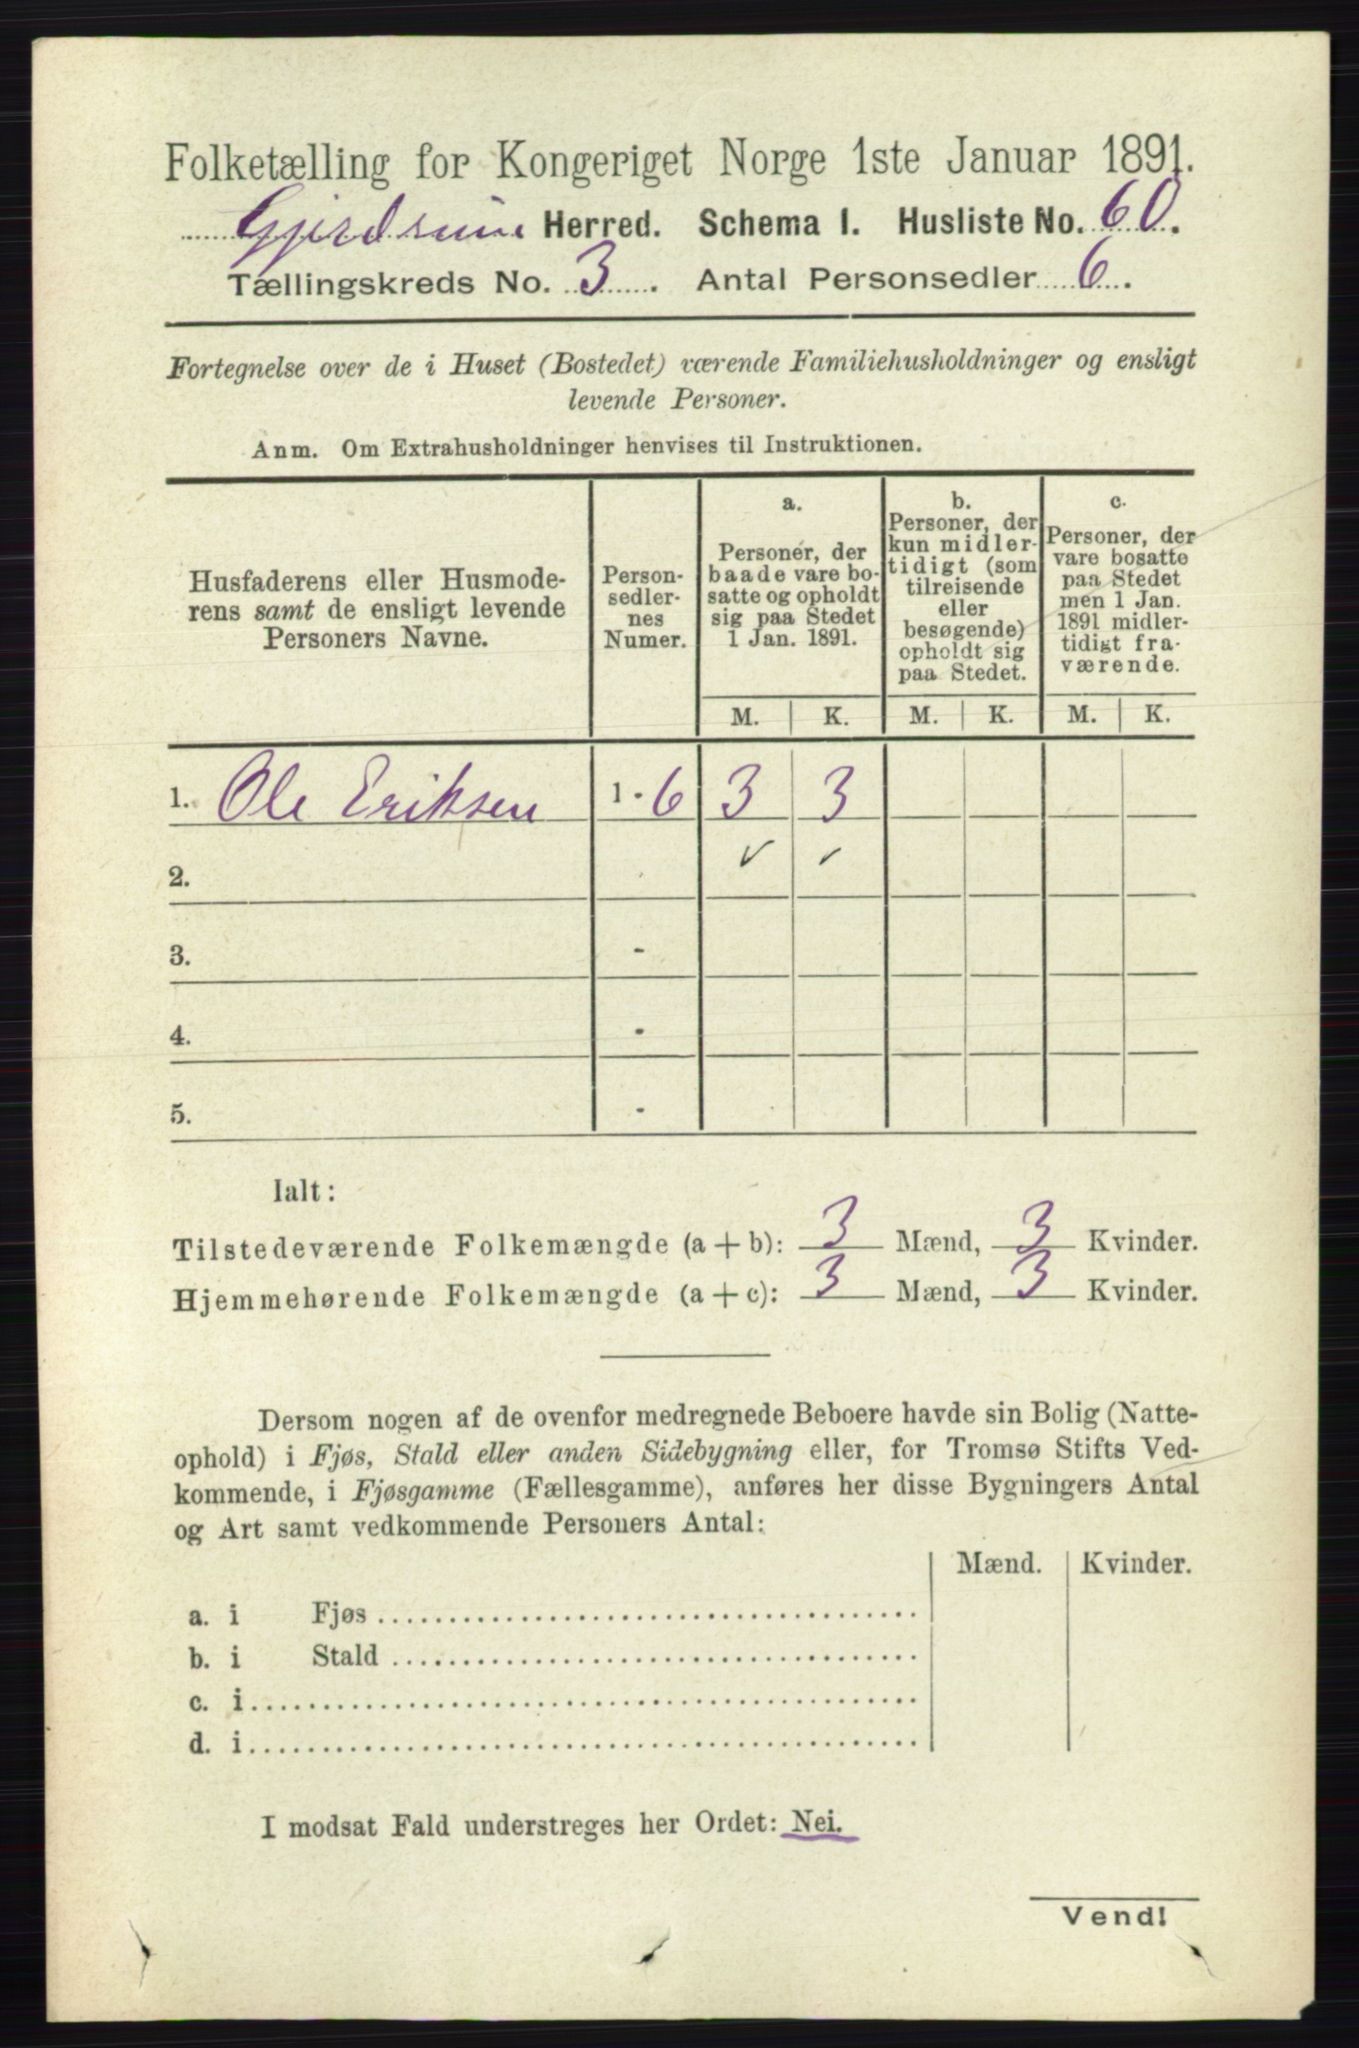 Folketælling for Kongeriget Norge 1ste Januar 1891.
Gjerdrum Herred. Schema I. Husliste No. 60.
Tællingskreds No. 3. Antal Personsedler 6.
Fortegnelse over de i Huset (Bostedet) værende Familiehusholdninger og ensligt
levende Personer.
Anm. Om Extrahusholdninger henvises til Instruktionen.
Husfaderens eller Husmode-
rens samt de ensligt levende
Personers Navne.
Person-
sedler-
nes
Numer.
a.
Personer, der
baade vare bo-
satte og opholdt
sig paa Stedet
1 Jan. 1891.
b.
Personer, der
kun midler-
tidigt (som
tilreisende
eller
besøgende)
opholdt sig
paa Stedet.
c.
Personer, der
vare bosatte
paa Stedet
men 1 Jan.
1891 midler-
tidigt fra-
værende.
M. K. M. K. M. K.
1. Ole Eriksen 1 - 6 3 3
2.
3. -
4. -
5. -
Ialt:
Tilstedeværende Folkemængde (a + b): 3 Mænd, 3 Kvinder.
Hjemmehørende Folkemængde (a + c): 3 Mænd, 3 Kvinder.
Dersom nogen af de ovenfor medregnede Beboere havde sin Bolig (Natte-
ophold) i Fjøs, Stald eller anden Sidebygning eller, for Tromsø Stifts Ved-
kommende, i Fjøsgamme (Fællesgamme), anføres her disse Bygningers Antal
og Art samt vedkommende Personers Antal:
Mænd. Kvinder.
a. i Fjøs
b. i Stald
c. i
d. i
I modsat Fald understreges her Ordet: Nei.
Vend!